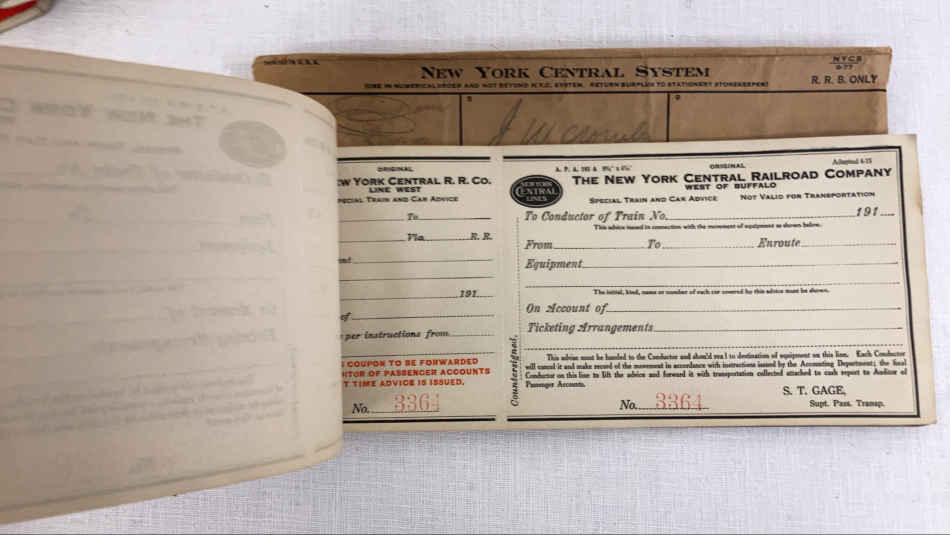 NEW YORK CENTRAL SYSTEM
NYCS
R. R. B. ONLY
USE IN NUMERICAL ORDER AND NOT BEYOND N.Y.C. SYSTEM. RETURN SURPLUS TO STATIONERY STOREKEEPER
ORIGINAL
EW YORK CENTRAL R. R. CO.
LINE WEST
PECIAL TRAIN AND CAR ADVICE
To
Via R. R.
ent
191
of
per instructions from
COUPON TO BE FORWARDED
ITOR OF PASSENGER ACCOUNTS
T TIME ADVICE IS ISSUED.
No. 3364
Countersigned,
ORIGINAL
Adopted 4-15
NEW YORK
CENTRAL
LINES
THE NEW YORK CENTRAL RAILROAD COMPANY
WEST OF BUFFALO
SPECIAL TRAIN AND CAR ADVICE NOT VALID FOR TRANSPORTATION
To Conductor of Train No. 191
This advice issued in connection with the movement of equipment as shown below.
From To Enroute
Equipment
The initial, kind, name or number of each car covered by this advice must be shown.
On Account of
Ticketing Arrangements
This advice must be handed to the Conductor and should read to destination of equipment on this line. Each Conductor
will cancel it and make record of the movement in accordance with instructions issued by the Accounting Department; the final
Conductor on this line to lift the advice and forward it with transportation collected attached to cash report to Auditor of
Passenger Accounts.
S. T. GAGE,
No. 3364 Supt. Pass. Transp.